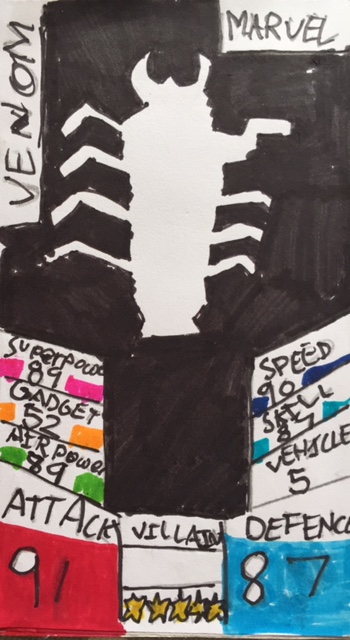 VENOM
MARVEL
SUPERPOWE
89
GADGET
52
AIR POWER
89
SPEED
90
SKILL
87
VEHICLE
5
ATTACK
91
VILLAIN
DEFENC
87